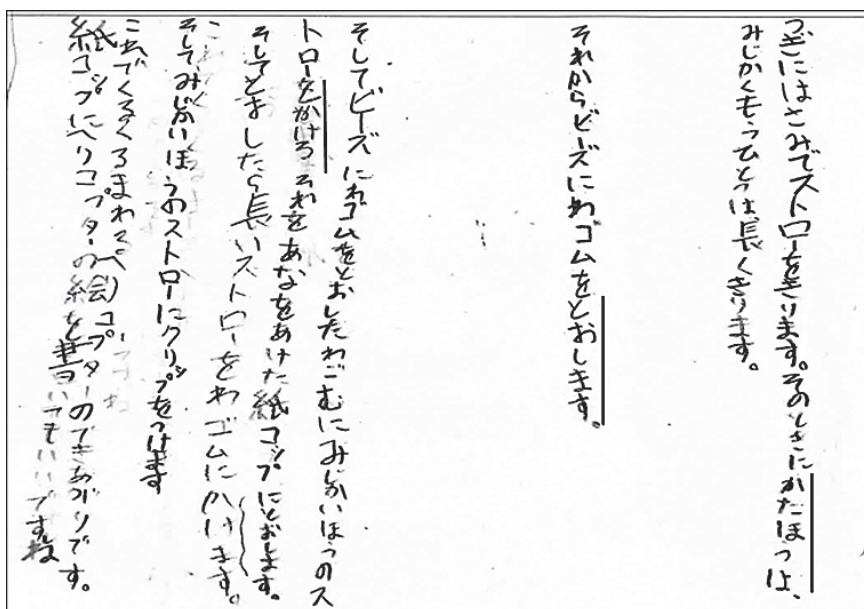 つぎにはさみでストローをきります。そのときにかたほうは、
みじかくもうひとつは長くきります。
それからビーズにわゴムをとおします。
そしてビーズにわゴムをとおしたわごむにみじかいほうのス
トローをかけるそれをあなをあけた紙コップにとおします。
そしてとおしたら長いストローをわゴムにかけます。
そして、みじかいほうのストローにクリップをつけます
これでくるくるまわるヘリコプターのできあがりです。
紙コップにヘリコプターの絵を書いてもいいですね